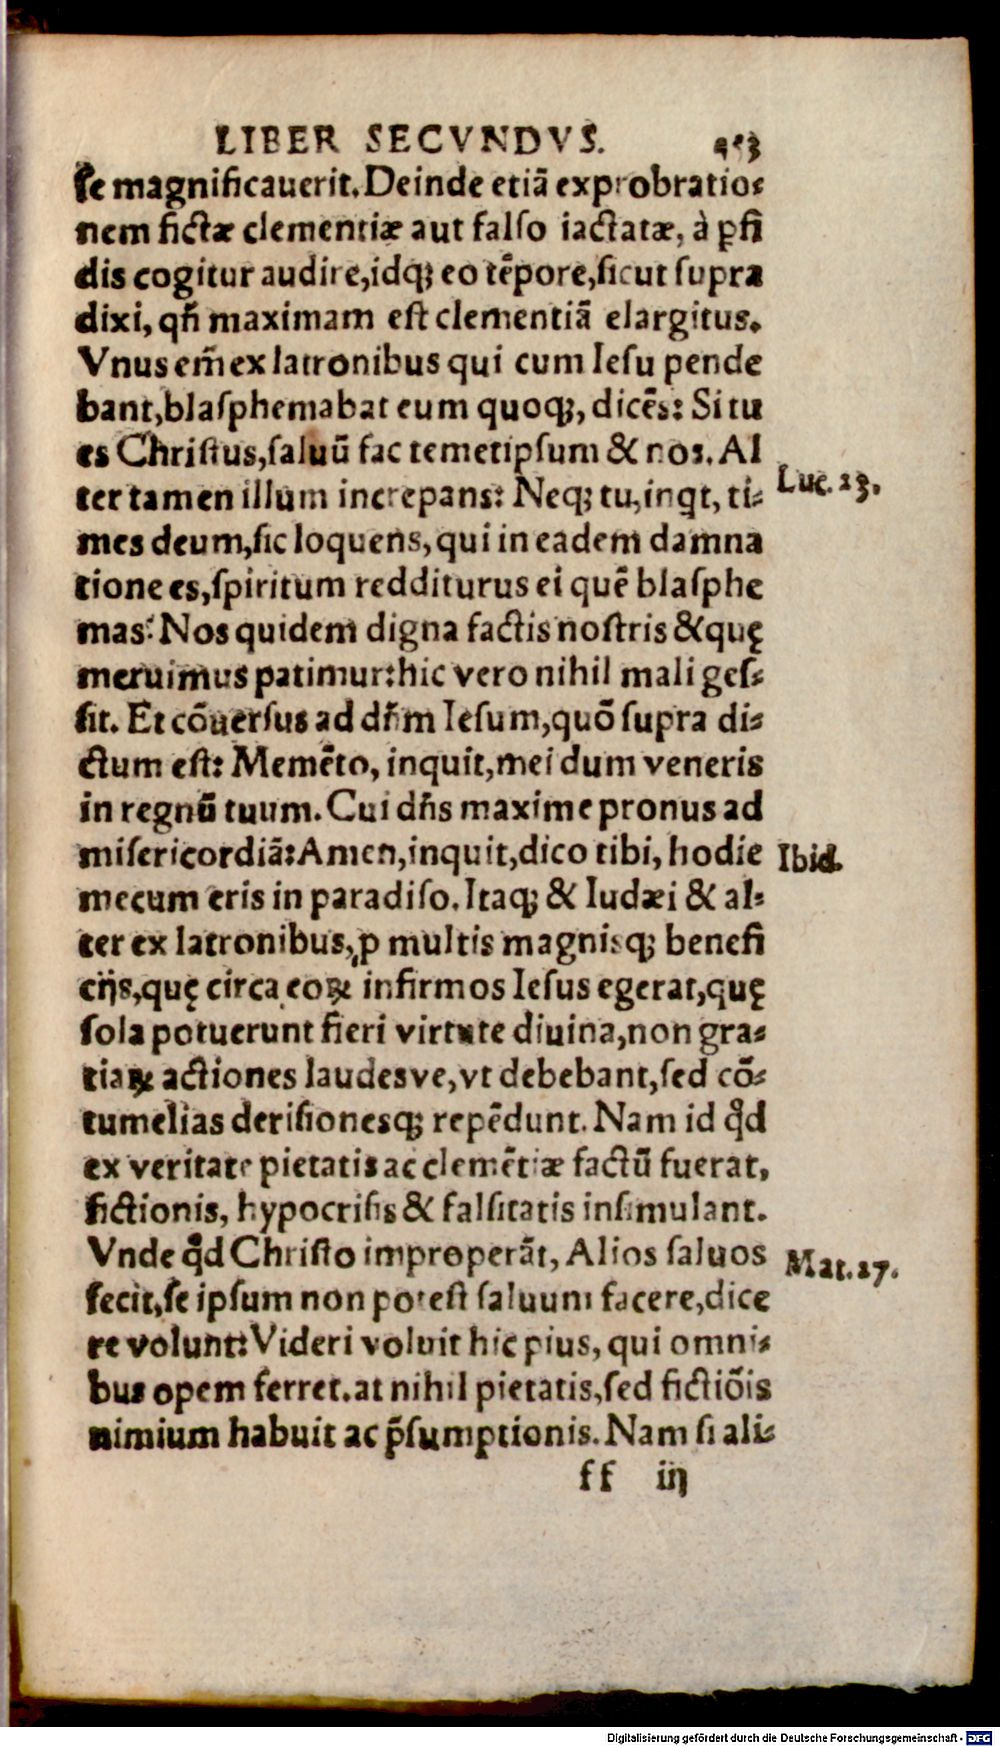 LIBER SECVNDVS. 453
ſe magnificauerit. Deinde etiā exprobratio⸗
nem fictæ clementiæ aut falſo iactatæ, à ꝑfi
dis cogitur audire, idq; eo tēpore, ſicut ſupra
dixi, qñ maximam eſt clementiā elargitus.
Vnus em̄ ex latronibus qui cum Ieſu pende
bant, blaſphemabat eum quoq;, dicēs: Si tu
es Chriſtus, ſaluū fac temetipſum & nos. Al
ter tamen illum increpans: Neq; tu, inqt, ti⸗
Luc. 23.
mes deum, ſic loquens, qui in eadem damna
tione es, ſpiritum redditurus ei quē blaſphe
mas? Nos quidem digna factis noſtris & quę
meruimus patimur: hic vero nihil mali geſ⸗
ſit. Et cōuerſus ad dñm Ieſum, quō ſupra di⸗
ctum eſt: Memēto, inquit, mei dum veneris
in regnū tuum. Cui dñs maxime pronus ad
miſericordiā: Amen, inquit, dico tibi, hodie
Ibid.
mecum eris in paradiſo. Itaq; & Iudæi & al⸗
ter ex latronibus, ꝓ multis magnisq; benefi
cijs, quę circa eoꝝ infirmos Ieſus egerat, quę
ſola potuerunt fieri virtute diuina, non gra⸗
tiaꝝ actiones laudesve, vt debebant, ſed cō⸗
tumelias deriſionesq; repēdunt. Nam id qd̄
ex veritate pietatis ac clemētiæ factū fuerat,
fictionis, hypocriſis & falſitatis inſimulant.
Vnde qd̄ Chriſto improperāt, Alios ſaluos
Mat. 27.
fecit, ſe ipſum non poteſt ſaluum facere, dice
re volunt: Videri voluit hic pius, qui omni⸗
bus opem ferret. at nihil pietatis, ſed fictiōis
nimium habuit ac p̄ſumptionis. Nam ſi ali⸗
ff iij
Digitalisierung gefördert durch die Deutsche Forschungsgemeinschaft - DFG